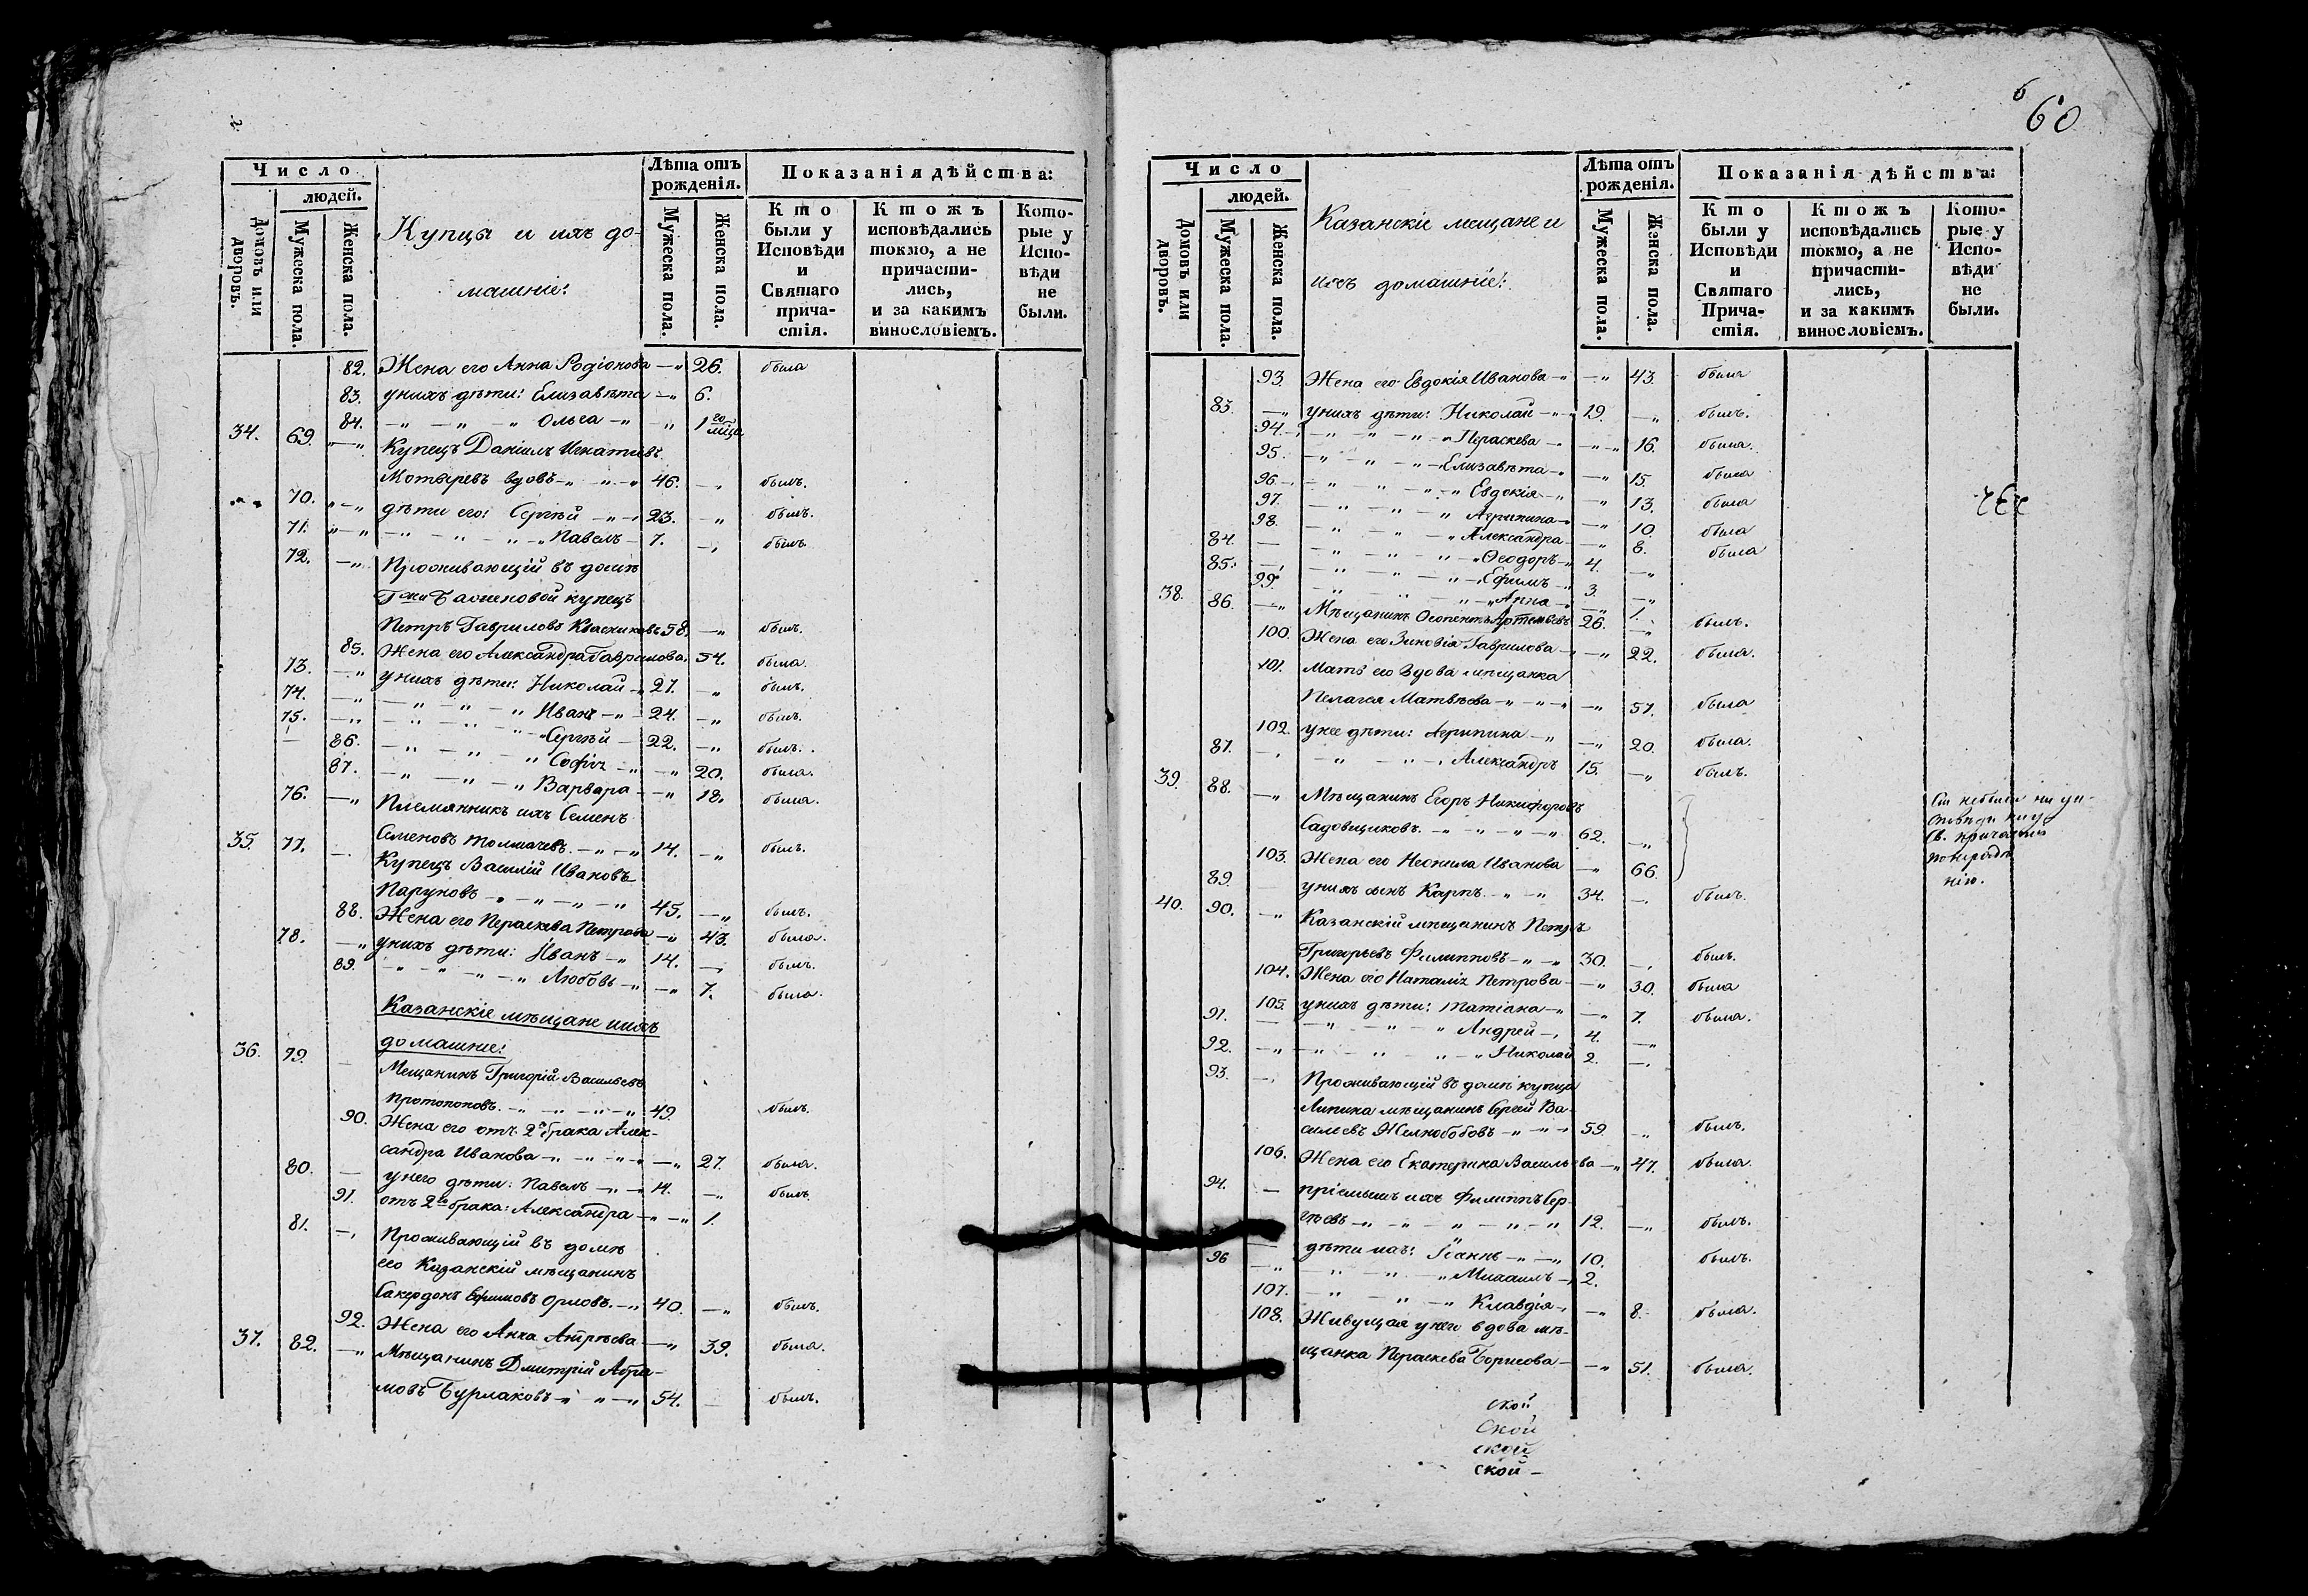 Число
людей.
Домовъ или дворовъ.
Мужеска пола.
Женска пола.
Купцы и ихъ до-
машніе:
Лѣта отъ рожденія.
Мужеска пола.
Женска пола.
Показанія дѣйства:
Кто были у Исповѣди и Святаго прича-стія.
Ктожъ исповѣдались токмо, а не причасти-лись, и за какимъ винословіемъ.
Кото-рые у Испо-вѣди не были.
82. Жена его Анна Родіонова —„ 26. была
83. у нихъ дѣти: Елизавѣта —„ 6.
84. —„ —„ —„ Ольга —„ —„ 1го мѣца
34. 69. —„ Купецъ Даніилъ Игнатьевъ
Мотыревъ вдовъ —„ —„ 46. —„ былъ.
70. „—„ дѣти его: Сергѣй —„ 23. —„ былъ.
71. „—„ —„ —„ —„ Павелъ — 7. —„ былъ.
72. —„ Проживающій въ домѣ
Гжи Баженовой купецъ
Петръ Гавриловъ Квасниковъ 58. —„ былъ.
85. Жена его Александра Гаврилова 54. была.
73. —„ у нихъ дѣти: Николай —„ 27. —„ былъ.
74. —„ —„ —„ —„ Иванъ —„ 24. —„ былъ.
75. —„ —„ —„ —„ Сергѣй — 22. —„ былъ.
— 86. —„ —„ —„ Софія —„ —„ 20. была.
87. —„ —„ —„ Варвара —„ 18. была.
76. —„ Племянникъ ихъ Семенъ
Семеновъ Толмачевъ. —„ —„ 14. —„ былъ.
35. 77. — Купецъ Василій Ивановъ
Паруновъ —„ —„ —„ —„ 45. —„ былъ.
88. Жена его Пераскева Петрова —„ 43. была.
78. —„ у нихъ дѣти: Иванъ —„ 14. —„ былъ.
89. —„ —„ —„ —„ Любовь —„ —„ 7. была.
Казанскіе мѣщане и ихъ
домашніе:
36. 79. — Мещанинъ Григорій Васильевъ
Протопоповъ. —„ —„ —„ —„ 49. былъ.
90. Жена его отъ 2го брака Алек-
сандра Иванова —„ —„ —„ —„ 27. была.
80. — у него дѣти: Павелъ —„ 14. —„ былъ.
91. отъ 2го брака: Александра —„ —„ 1.
81. —„ Проживающій въ домѣ
его Казанскій мѣщанинъ
Сакердонъ Ефимовъ Орловъ. —„ 40. —„ былъ.
92. Жена его Анна Андреева —„ 39. была.
37. 82. —„ Мѣщанинъ Дмитрій Абра-
мовъ Бурлаковъ —„ —„ —„ 54. — былъ.
6
60
Число
людей.
Домовъ или дворовъ.
Мужеска пола.
Женска пола.
Казанскіе мещане и
ихъ домашніе:
Лѣта отъ рожденія.
Мужеска пола.
Женска пола.
Показанія дѣйства:
Кто были у Исповѣди и Святаго Прича-стія.
Ктожъ исповѣдались токмо, а не причасти-лись, и за какимъ винословіемъ.
Кото-рые у Испо-вѣди не были.
93. Жена его Евдокія Иванова —„ —„ 43. была
83. —„ у нихъ дѣти: Николай —„ 19. —„ былъ.
94. —„ —„ —„ Пераскева —„ —„ 16. была.
95. —„ —„ —„ Елизавѣта —„ —„ 15. была
96. —„ —„ —„ Евдокія —„ —„ 13. была
97. —„ —„ —„ Агрипина —„ —„ 10. была
98. —„ —„ —„ Александра —„ 8. была
84. — —„ —„ —„ Ѳеодоръ —„ 4. —„
85. —„ —„ —„ —„ Ефимъ —„ 3. —„
99. —„ —„ —„ Анна —„ —„ 1.
38. 86. —„ Мѣщанинъ Ѳеопентъ Артемьевъ 26. —„ былъ.
100. Жена его Зиновія Гаврилова —„ —„ 22. была.
101. Мать его вдова мещанка
Пелагея Матвѣева —„ —„ —„ —„ 57. была
102. у нее дѣти: Агрипина —„ —„ 20. была.
87. —„ —„ —„ Александръ 15. —„ былъ.
39. 88. —„ Мѣщанинъ Егоръ Никифоровъ
Садовщиковъ. —„ —„ —„ —„ 62. —„
Сіи небыли ни у и-
сповѣди ни у
Св. причастія
понерадѣ
нію.
103. Жена его Неонила Иванова —„ 66.
89. у нихъ сынъ Карпъ. —„ —„ 34. —„ былъ.
40. 90. —„ Казанскій мѣщанинъ Петръ
Григорьевъ Филипповъ —„ —„ 30. —„ былъ.
104. Жена его Наталія Петрова —„ 30. была
105. у нихъ дѣти: Татіана —„ —„ 7. была.
91. — —„ —„ —„ Андрей —„ 4. —„
92. —„ —„ —„ —„ Николай 2. —„
93. —„ Проживающій въ домѣ купца
Липина мѣщанинъ Сергей Ва-
сильевъ Желнобобовъ —„ —„ 59. —„ былъ.
106. Жена его Екатерина Васильева —„ 47. была.
94. — пріемышъ ихъ Филиппъ Сер-
гѣевъ —„ —„ —„ —„ —„ 12. —„ былъ.
— дѣти ихъ: Іоаннъ —„ —„ 10. былъ.
96 —„ —„ —„ —„ Михаилъ —„ 2.
107. —„ —„ —„ Клавдія —„ —„ 8. была.
108. Живущая у него вдова мѣ-
щанка Пераскева Борисова —„ 51. была.
ской
Ской
ской
ской —